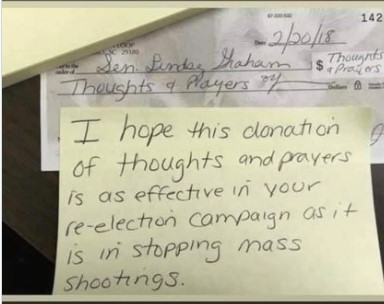 142
Date 2/20/18
SC 29180
order of Sen. Lindsey Graham $ Thoughts & Prayers
Thoughts & Prayers
Dollars
I hope this donation
of thoughts and prayers
is as effective in your
re-election campaign as it
is in stopping mass
shootings.